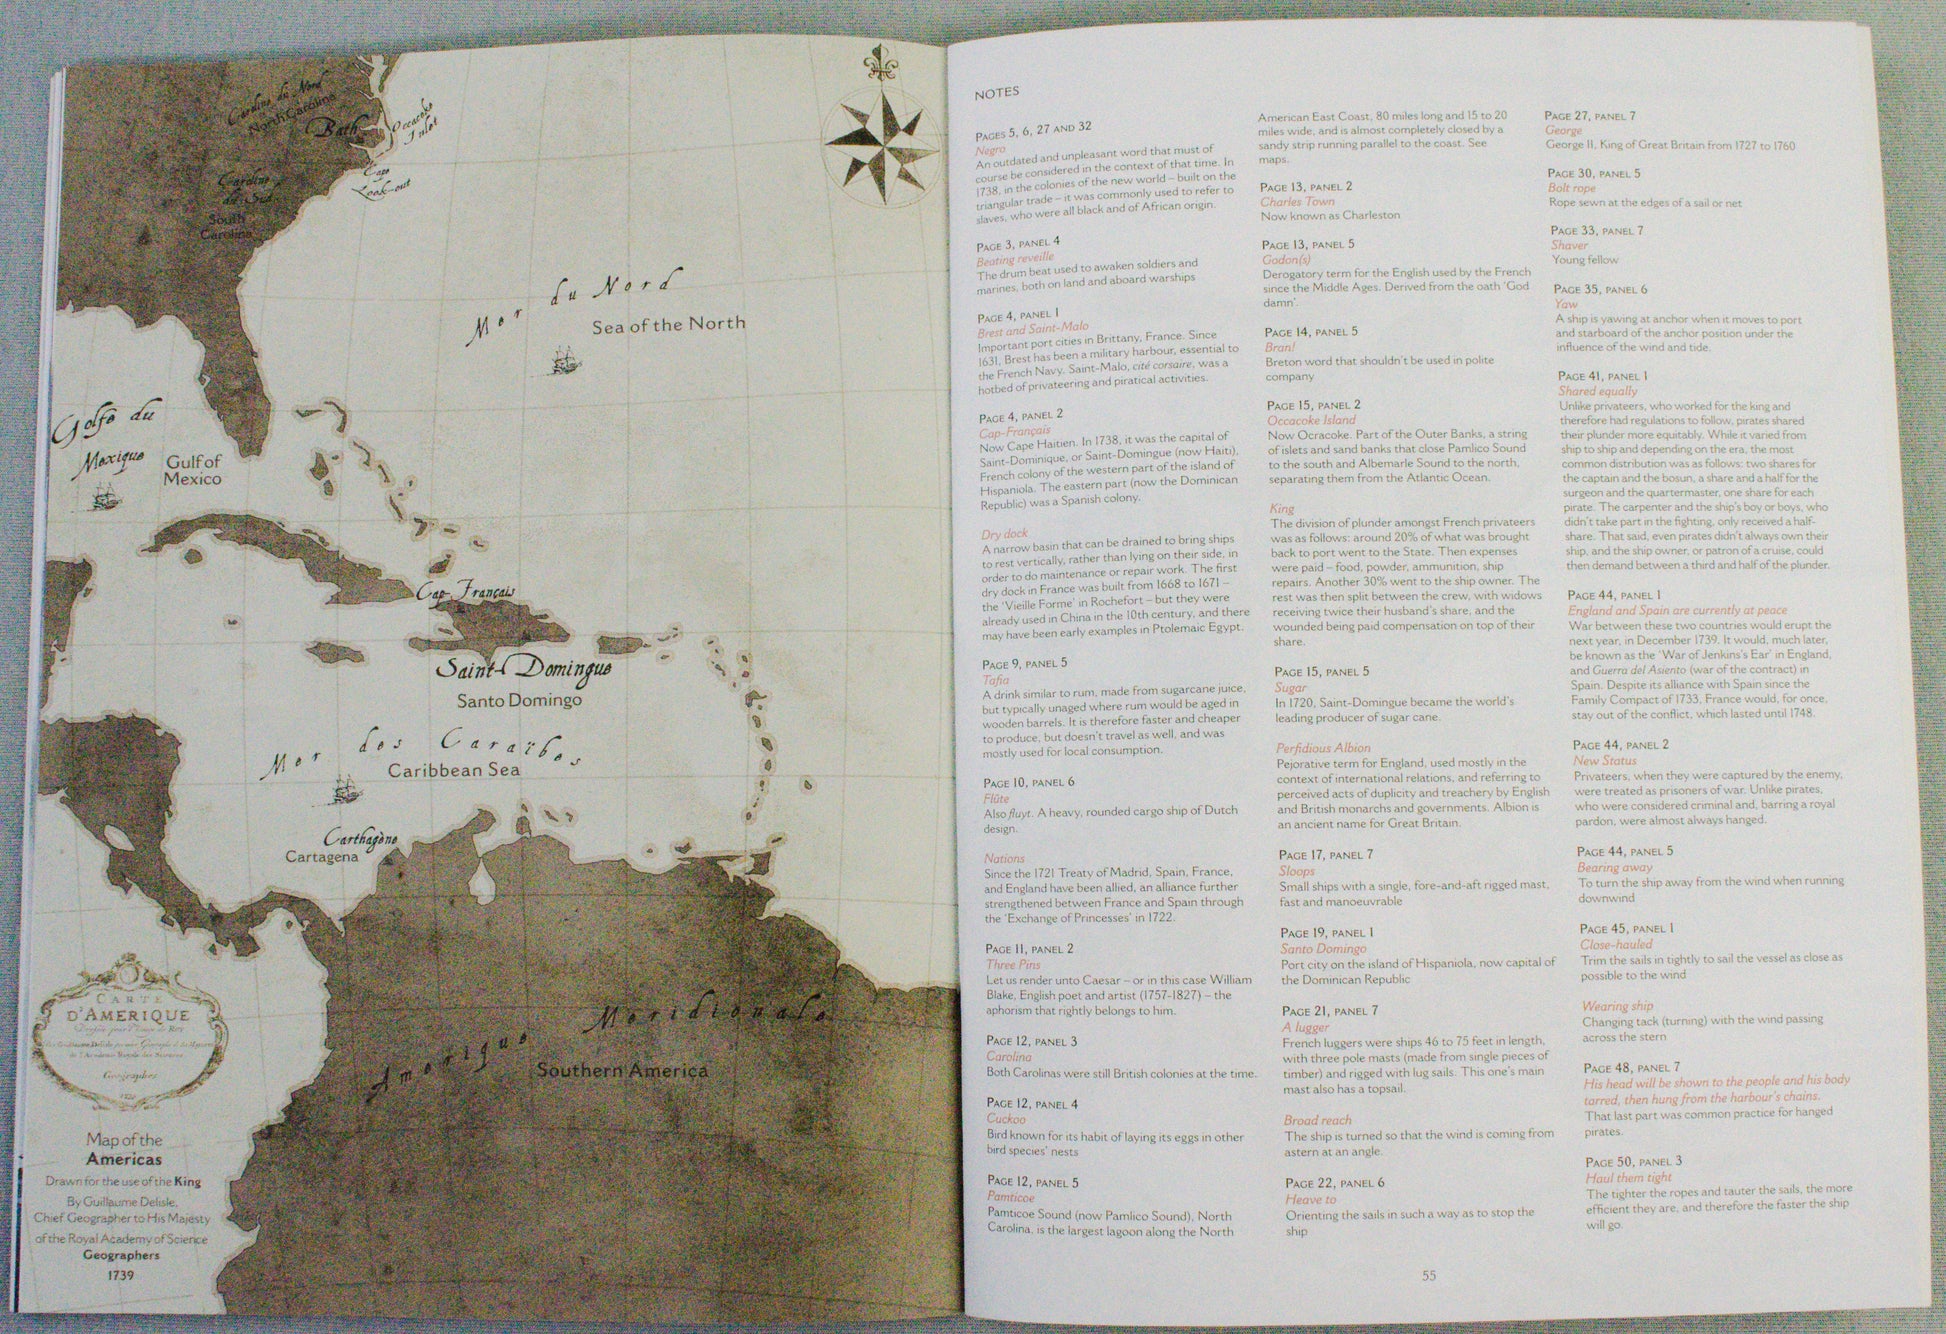 Caroline du Nord
North Carolina
Bath
Occacoke
Inlet
Cape
Look-out
Caroline
du Sud
South
Carolina
Mer du Nord
Sea of the North
Golfe du
Mexique
Gulf of
Mexico
Cap-Français
Saint-Domingue
Santo Domingo
Mer des Caraïbes
Caribbean Sea
Carthagène
Cartagena
Amerique Meridionale
Southern America
CARTE
D'AMERIQUE
Geographes
Map of the
Americas
Drawn for the use of the King
By Guillaume Delisle,
Chief Geographer to His Majesty
of the Royal Academy of Science
Geographers
1739
NOTES
PAGES 5, 6, 27 AND 32
Negro
An outdated and unpleasant word that must of
course be considered in the context of that time. In
1738, in the colonies of the new world – built on the
triangular trade – it was commonly used to refer to
slaves, who were all black and of African origin.
PAGE 3, PANEL 4
Beating reveille
The drum beat used to awaken soldiers and
marines, both on land and aboard warships
PAGE 4, PANEL 1
Brest and Saint-Malo
Important port cities in Brittany, France. Since
1631, Brest has been a military harbour, essential to
the French Navy. Saint-Malo, cité corsaire, was a
hotbed of privateering and piratical activities.
PAGE 4, PANEL 2
Cap-Français
Now Cape Haitien. In 1738, it was the capital of
Saint-Dominique, or Saint-Domingue (now Haiti),
French colony of the western part of the island of
Hispaniola. The eastern part (now the Dominican
Republic) was a Spanish colony.
Dry dock
A narrow basin that can be drained to bring ships
to rest vertically, rather than lying on their side, in
order to do maintenance or repair work. The first
dry dock in France was built from 1668 to 1671 –
the 'Vieille Forme' in Rochefort – but they were
already used in China in the 10th century, and there
may have been early examples in Ptolemaic Egypt.
PAGE 9, PANEL 5
Tafia
A drink similar to rum, made from sugarcane juice,
but typically unaged where rum would be aged in
wooden barrels. It is therefore faster and cheaper
to produce, but doesn't travel as well, and was
mostly used for local consumption.
PAGE 10, PANEL 6
Flûte
Also fluyt. A heavy, rounded cargo ship of Dutch
design.
Nations
Since the 1721 Treaty of Madrid, Spain, France,
and England have been allied, an alliance further
strengthened between France and Spain through
the 'Exchange of Princesses' in 1722.
PAGE 11, PANEL 2
Three Pins
Let us render unto Caesar – or in this case William
Blake, English poet and artist (1757-1827) – the
aphorism that rightly belongs to him.
PAGE 12, PANEL 3
Carolina
Both Carolinas were still British colonies at the time.
PAGE 12, PANEL 4
Cuckoo
Bird known for its habit of laying its eggs in other
bird species' nests
PAGE 12, PANEL 5
Pamticoe
Pamticoe Sound (now Pamlico Sound), North
Carolina, is the largest lagoon along the North
American East Coast, 80 miles long and 15 to 20
miles wide, and is almost completely closed by a
sandy strip running parallel to the coast. See
maps.
PAGE 13, PANEL 2
Charles Town
Now known as Charleston
PAGE 13, PANEL 5
Godon(s)
Derogatory term for the English used by the French
since the Middle Ages. Derived from the oath 'God
damn'.
PAGE 14, PANEL 5
Bran!
Breton word that shouldn't be used in polite
company
PAGE 15, PANEL 2
Occacoke Island
Now Ocracoke. Part of the Outer Banks, a string
of islets and sand banks that close Pamlico Sound
to the south and Albemarle Sound to the north,
separating them from the Atlantic Ocean.
King
The division of plunder amongst French privateers
was as follows: around 20% of what was brought
back to port went to the State. Then expenses
were paid – food, powder, ammunition, ship
repairs. Another 30% went to the ship owner. The
rest was then split between the crew, with widows
receiving twice their husband's share, and the
wounded being paid compensation on top of their
share.
PAGE 15, PANEL 5
Sugar
In 1720, Saint-Domingue became the world's
leading producer of sugar cane.
Perfidious Albion
Pejorative term for England, used mostly in the
context of international relations, and referring to
perceived acts of duplicity and treachery by English
and British monarchs and governments. Albion is
an ancient name for Great Britain.
PAGE 17, PANEL 7
Sloops
Small ships with a single, fore-and-aft rigged mast,
fast and manoeuvrable
PAGE 19, PANEL 1
Santo Domingo
Port city on the island of Hispaniola, now capital of
the Dominican Republic
PAGE 21, PANEL 7
A lugger
French luggers were ships 46 to 75 feet in length,
with three pole masts (made from single pieces of
timber) and rigged with lug sails. This one's main
mast also has a topsail.
Broad reach
The ship is turned so that the wind is coming from
astern at an angle.
PAGE 22, PANEL 6
Heave to
Orienting the sails in such a way as to stop the
ship
PAGE 27, PANEL 7
George
George II, King of Great Britain from 1727 to 1760
PAGE 30, PANEL 5
Bolt rope
Rope sewn at the edges of a sail or net
PAGE 33, PANEL 7
Shaver
Young fellow
PAGE 35, PANEL 6
Yaw
A ship is yawing at anchor when it moves to port
and starboard of the anchor position under the
influence of the wind and tide.
PAGE 41, PANEL 1
Shared equally
Unlike privateers, who worked for the king and
therefore had regulations to follow, pirates shared
their plunder more equitably. While it varied from
ship to ship and depending on the era, the most
common distribution was as follows: two shares for
the captain and the bosun, a share and a half for the
surgeon and the quartermaster, one share for each
pirate. The carpenter and the ship's boy or boys, who
didn't take part in the fighting, only received a half-
share. That said, even pirates didn't always own their
ship, and the ship owner, or patron of a cruise, could
then demand between a third and half of the plunder.
PAGE 44, PANEL 1
England and Spain are currently at peace
War between these two countries would erupt the
next year, in December 1739. It would, much later,
be known as the 'War of Jenkins's Ear' in England,
and Guerra del Asiento (war of the contract) in
Spain. Despite its alliance with Spain since the
Family Compact of 1733, France would, for once,
stay out of the conflict, which lasted until 1748.
PAGE 44, PANEL 2
New Status
Privateers, when they were captured by the enemy,
were treated as prisoners of war. Unlike pirates,
who were considered criminal and, barring a royal
pardon, were almost always hanged.
PAGE 44, PANEL 5
Bearing away
To turn the ship away from the wind when running
downwind
PAGE 45, PANEL 1
Close-hauled
Trim the sails in tightly to sail the vessel as close as
possible to the wind
Wearing ship
Changing tack (turning) with the wind passing
across the stern
PAGE 48, PANEL 7
His head will be shown to the people and his body
tarred, then hung from the harbour's chains.
That last part was common practice for hanged
pirates.
PAGE 50, PANEL 3
Haul them tight
The tighter the ropes and tauter the sails, the more
efficient they are, and therefore the faster the ship
will go.
55